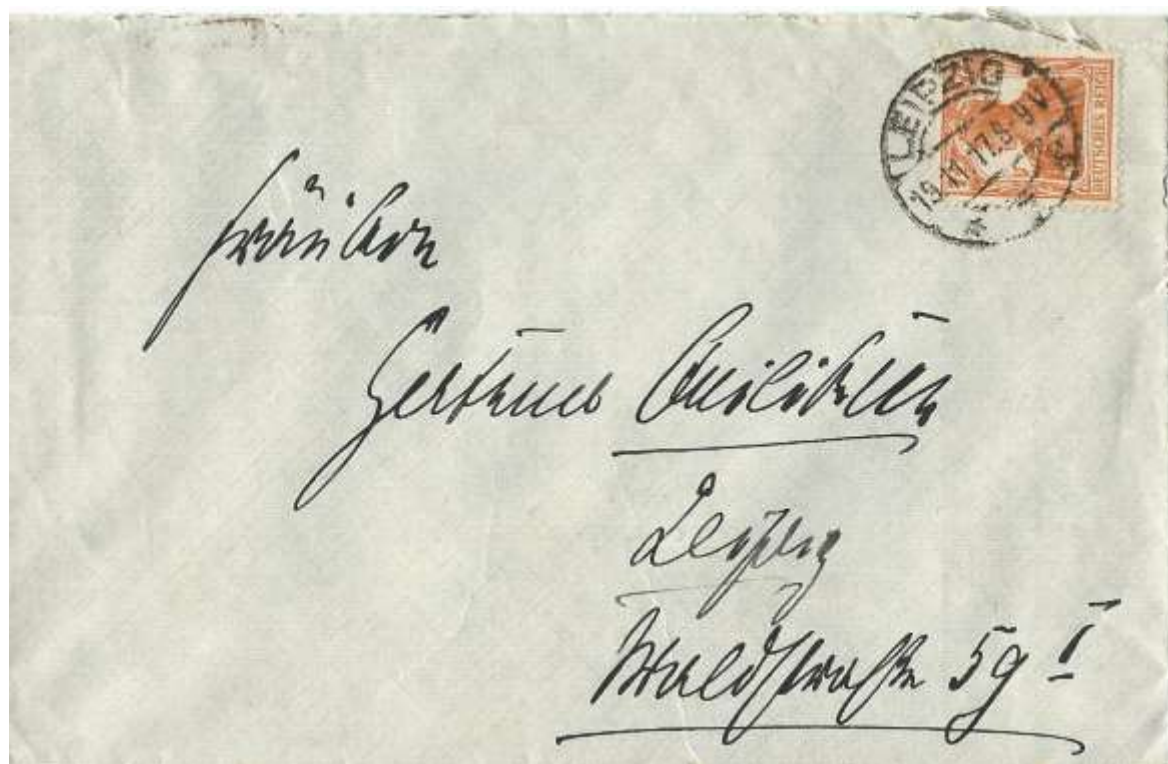 LEIPZIG
DEUTSCHES REICH
Fräulein
Gertrud
Leipzig
Waldstraße 59 I